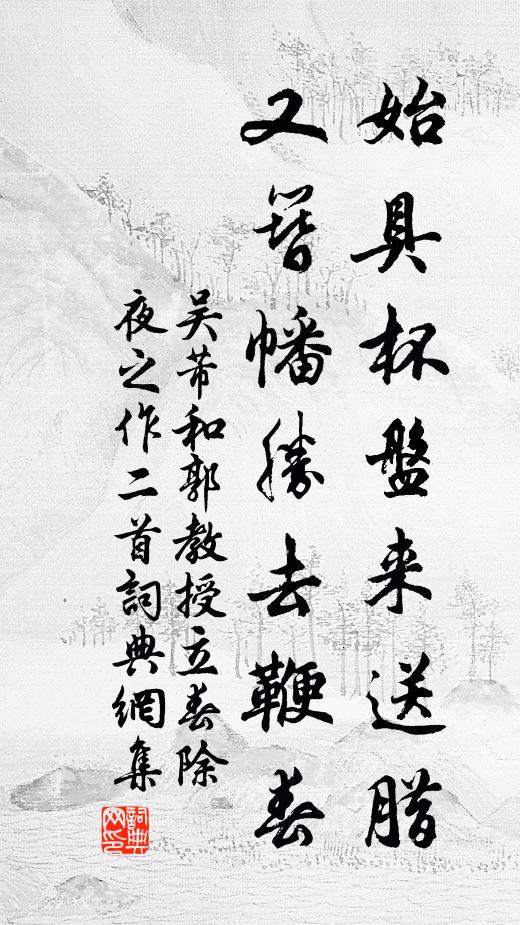 始具杯盤来送腊
又簪幡勝去鞭春
吴芾和郭教授立春除
夜之作二首詞典網集
詞典
网印